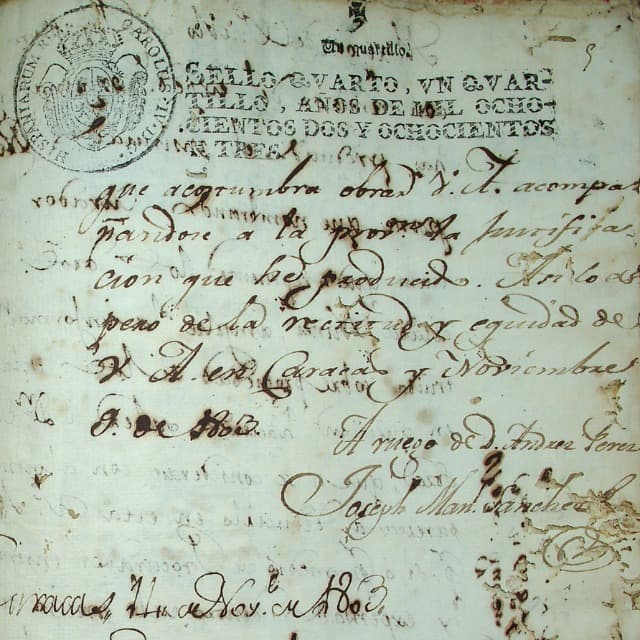 Un quartillo.
SELLO QVARTO, VN QVAR-
TILLO, AÑOS DE MIL OCHO-
CIENTOS DOS Y OCHOCIENTOS
Y TRES.
que acostumbra obrar V. A. acompa
ñandose a la la justifica
cion que he producido. Asi lo es
pero de la rectitud y equidad de
V. A. en Caracas y Noviembre
9. de 1803.
A ruego de d. Andres Perez
Joseph Man. Sanchez
Caracas, 11 de Nov.e de 1803.